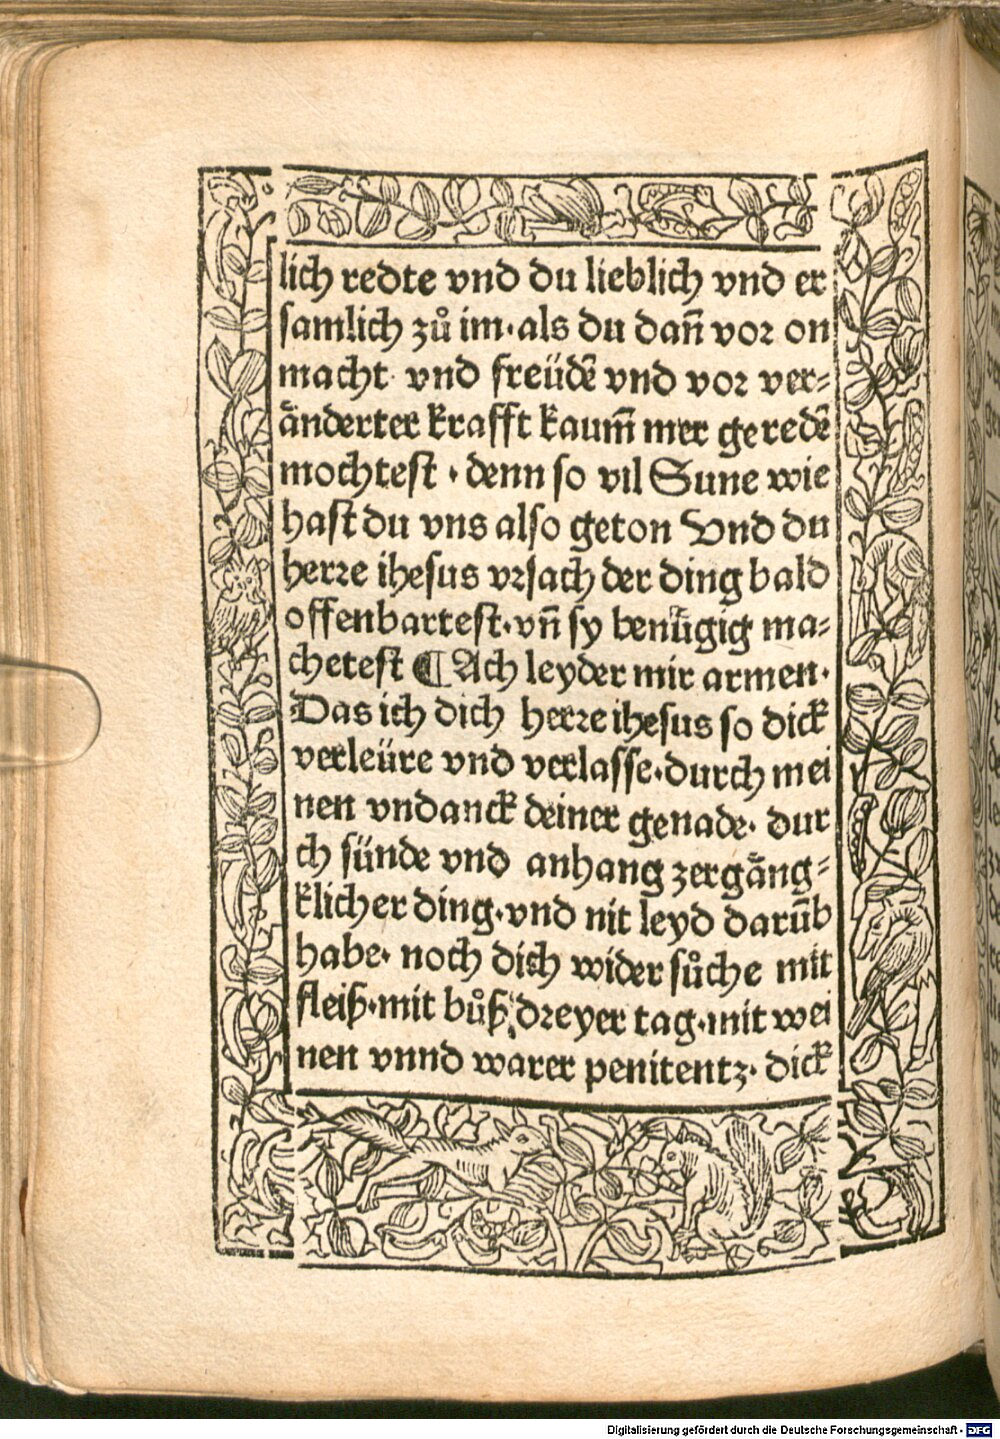 lich redte vnd du lieblich vnd er
samlich zů im·als du dañ vor on
macht· vnd freüdē vnd vor ver⸗
ånderter krafft kaum̄ mer geredē
mochtest · denn so vil Sune wie
hast du vns also geton Vnd du
herre ihesus vrsach der ding bald
offenbartest·vñ sy benügig ma⸗
chetest ¶ Ach leyder mir armen·
Das ich dich herre ihesus so dick
verleüre vnd verlasse·durch mei
nen vndanck deiner genade· dur
ch sünde vnd anhang zergång⸗
klicher ding·vnd nit leyd darūb
habe· noch dich wider sůche mit
fleiß·mit bůß dreyer tag·mit wei
nen vnnd warer penitentz· dick
Digitalisierung gefördert durch die Deutsche Forschungsgemeinschaft - DFG